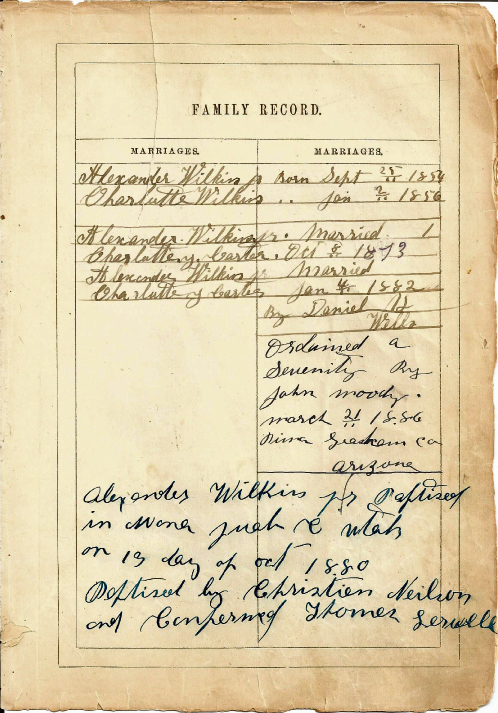 FAMILY RECORD.
MARRIAGES. MARRIAGES.
Alexander Wilkins jr Born Sept 25 1854
Charlotte Wilkins .. Jan 2 1856
Alexander. Wilkins jr. Married. 1
Charlotte J. Carter. Oct 8 1873
Alexander Wilkins jr Married
Charlotte J Carter Jan 4 1882
By Daniel H
Wells
Ordained a
Seventy By
John moody.
march 21 1886
Pima Graham co
arizona
Alexander Wilkins jr Baptised
in Mona Juab C Utah
on 13 day of oct 1880
Baptised by Christien Neilson
and Confermed Thomes